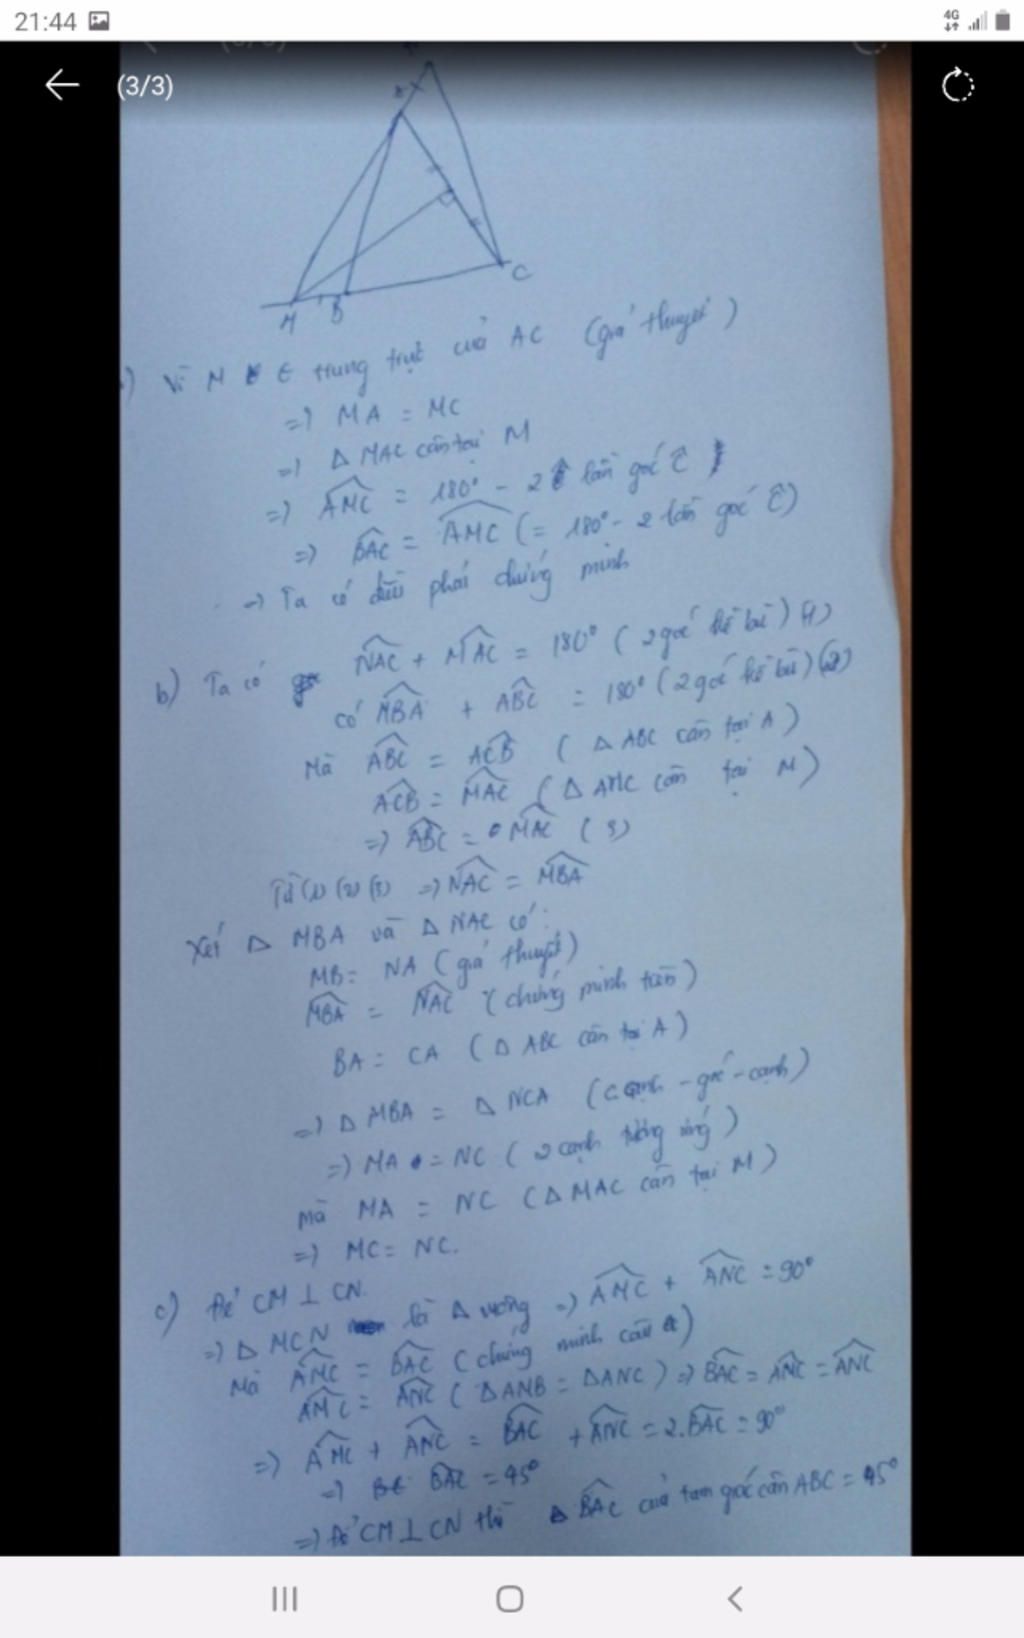 21:44
4G
(3/3)
A
C
M
B
) Vì M ∈ trung trực của AC (giả thuyết)
=) MA = MC
=) Δ MAC cân tại M
=) AMC = 180° - 2 lần góc C
=) BAC = AMC (= 180° - 2 lần góc C)
=) Ta có điều phải chứng minh
b) Ta có NAC + MAC = 180° (2 góc kề bù) (1)
có MBA + ABC = 180° (2 góc kề bù) (2)
Mà ABC = ACB (Δ ABC cân tại A)
ACB = MAC (Δ AMC cân tại M)
=) ABC = MAC (3)
Từ (1) (2) (3) =) NAC = MBA
Xét Δ MBA và Δ NAC có:
MB = NA (giả thuyết)
MBA = NAC (chứng minh trên)
BA = CA (Δ ABC cân tại A)
=) Δ MBA = Δ NCA (cạnh - góc - cạnh)
=) MA = NC (2 cạnh tương ứng)
mà MA = NC (Δ MAC cân tại M)
=) MC = NC.
c) Để CM ⊥ CN
=) Δ MCN là Δ vuông =) AMC + ANC = 90°
Mà AMC = BAC (chứng minh câu a)
AMC = ANC (ΔAMB = ΔANC) =) BAC = AMC = ANC
=) AMC + ANC = BAC + ANC = 2.BAC = 90°
=) BAC = 45°
=) Để CM ⊥ CN thì BAC của tam giác cân ABC = 45°